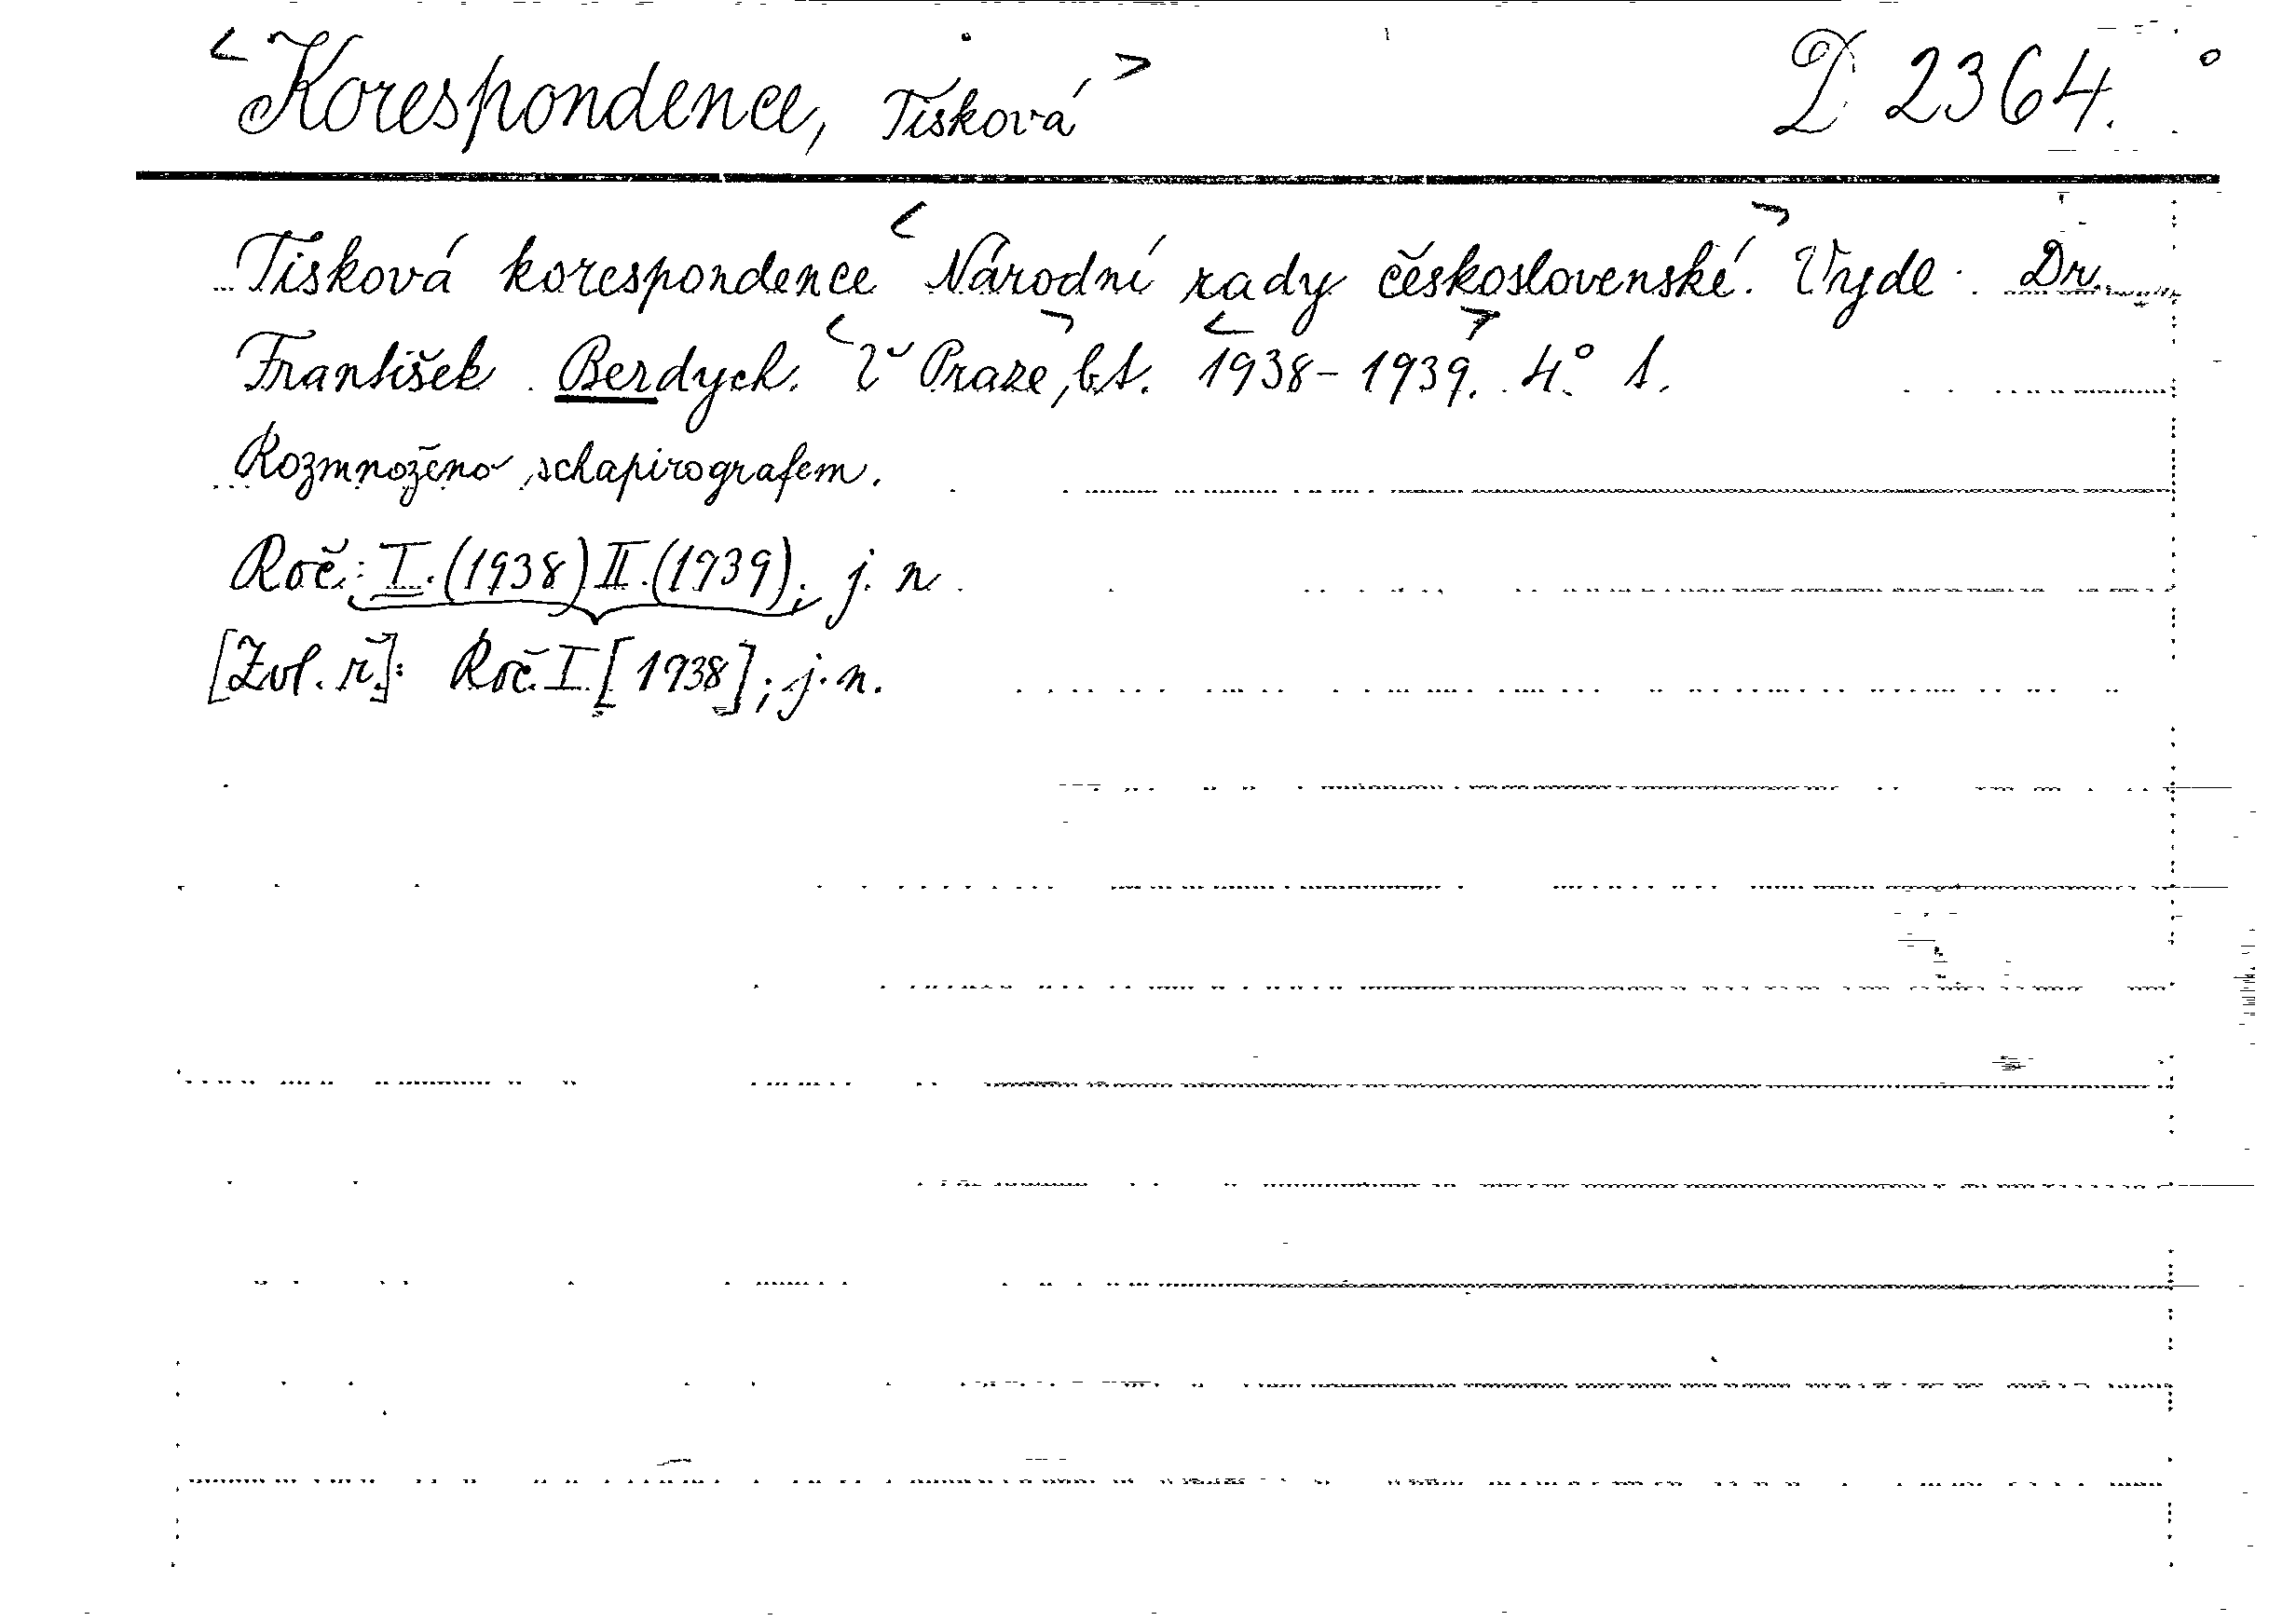 <Korespondence, Tisková> D 2364.
Tisková korespondence <Národní rady československé.> Vyde. Dr.
František Berdych. <V Praze,> b.t. <1938-1939.> 4.° 1.
Rozmnoženo schapirografem.
Roč: I.(1938) II.(1939); j. n.
[Zvl. ř.]: Roč. I [1938]; j. n.